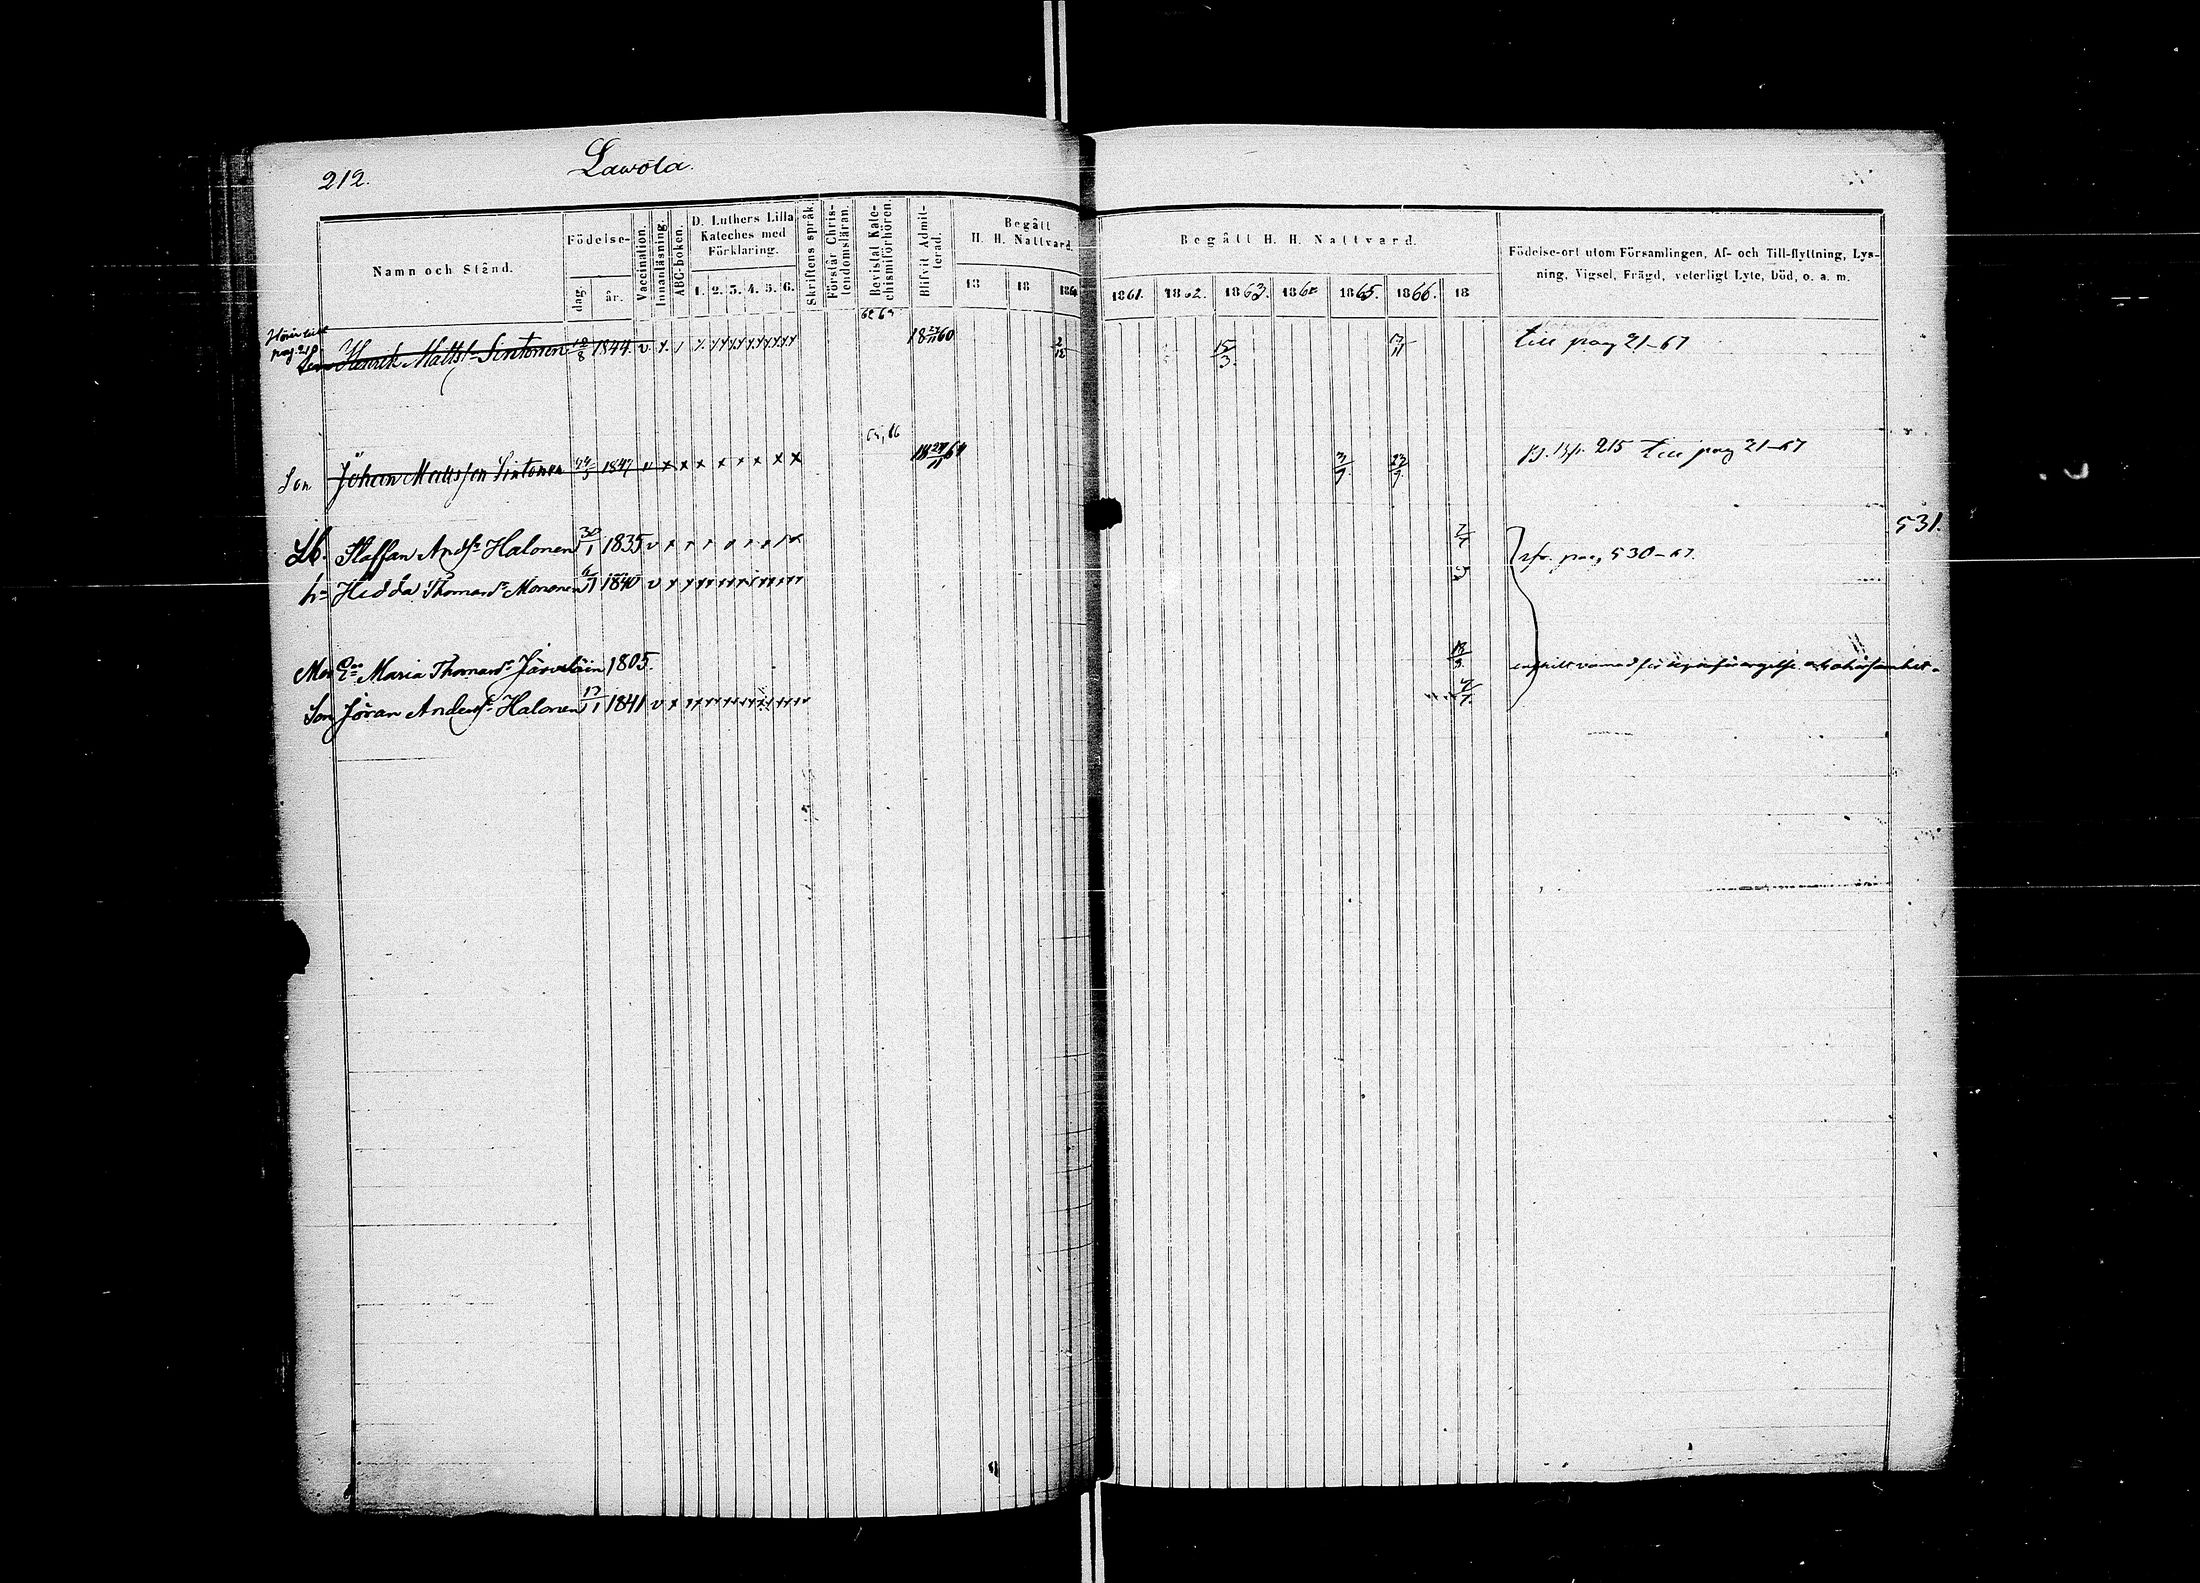 212.
Lawola.
Namn och Stånd.
Födelse-
dag.
år.
Vaccination.
Innanläsning.
ABC-boken.
D. Luthers Lilla
Kateches med
Förklaring.
1. 2. 3. 4. 5. 6.
Skriftens språk.
Förstår Chris-
tendomsläran.
Bevistat Kate-
chismiförhören.
Blifvit Admit-
terad.
Begått
H. H. Nattvard.
18 18 1860
Begått H. H. Nattvard.
1861. 1862. 1863. 1864 1865. 1866. 18
Födelse-ort utom Församlingen, Af- och Till-flyttning, Lys-
ning, Vigsel, Frägd, veterligt Lyte, Död, o. a. m.
pag. 210
Son Henrik Matts Sintonen 18/8 1844 v x 18 27/11 60 2/12 15/3. 17/11 till pag 21-67
Son Johan Mattsson Sintonen 24/3 1847 v x x x x x x x x 18 27/11 64 3/9. 23/9. 215 till pag 21-67
531.
Lb. Staffan Ands Halonen 30/1 1835 v 7/7 pag 530-67.
h Hedda Thomasd Mononen 6/11 1840 v
Mor E Maria Thomasd Järveläin 1805. 18/3.
Son Jöran Anders Halonen 17/1 1841 v x 7/7.